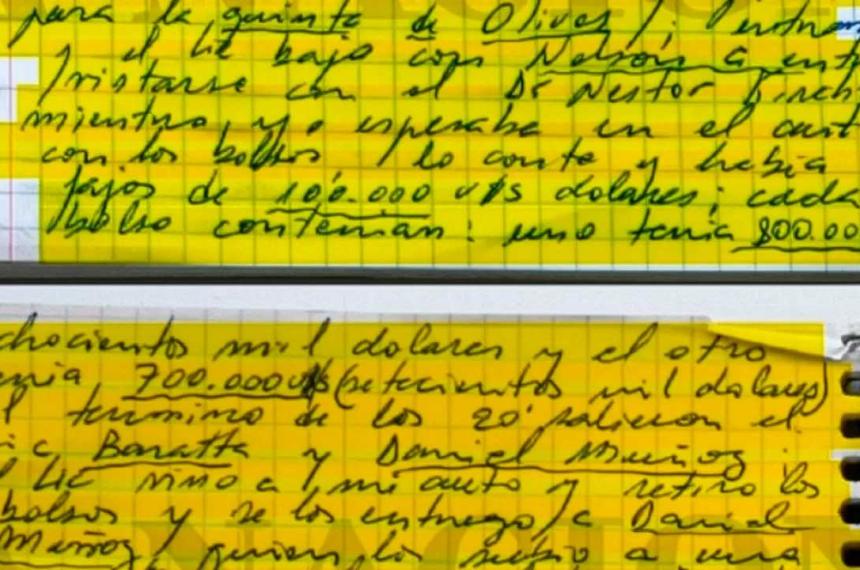 para la quinta de Olivos /; entra
el Lic bajo con Nelson G ent
/ristarse con el Dr Nestor Kirch
mientras yo esperaba en el aut
con los bolsos / lo conte y había
fajos de 100.000 u$s dolares; cada
bolso contenian: uno tenia 800.00
chocientos mil dolares y el otro
enia 700.000u$s (setecientos mil dolares)
l termino de los 20' salieron el
ic Baratta y Daniel Muñoz
l Lic vino a mi auto y retiro los
bolsos y se los entrego / a Daniel
Muñoz / quien los subio a una
NACION